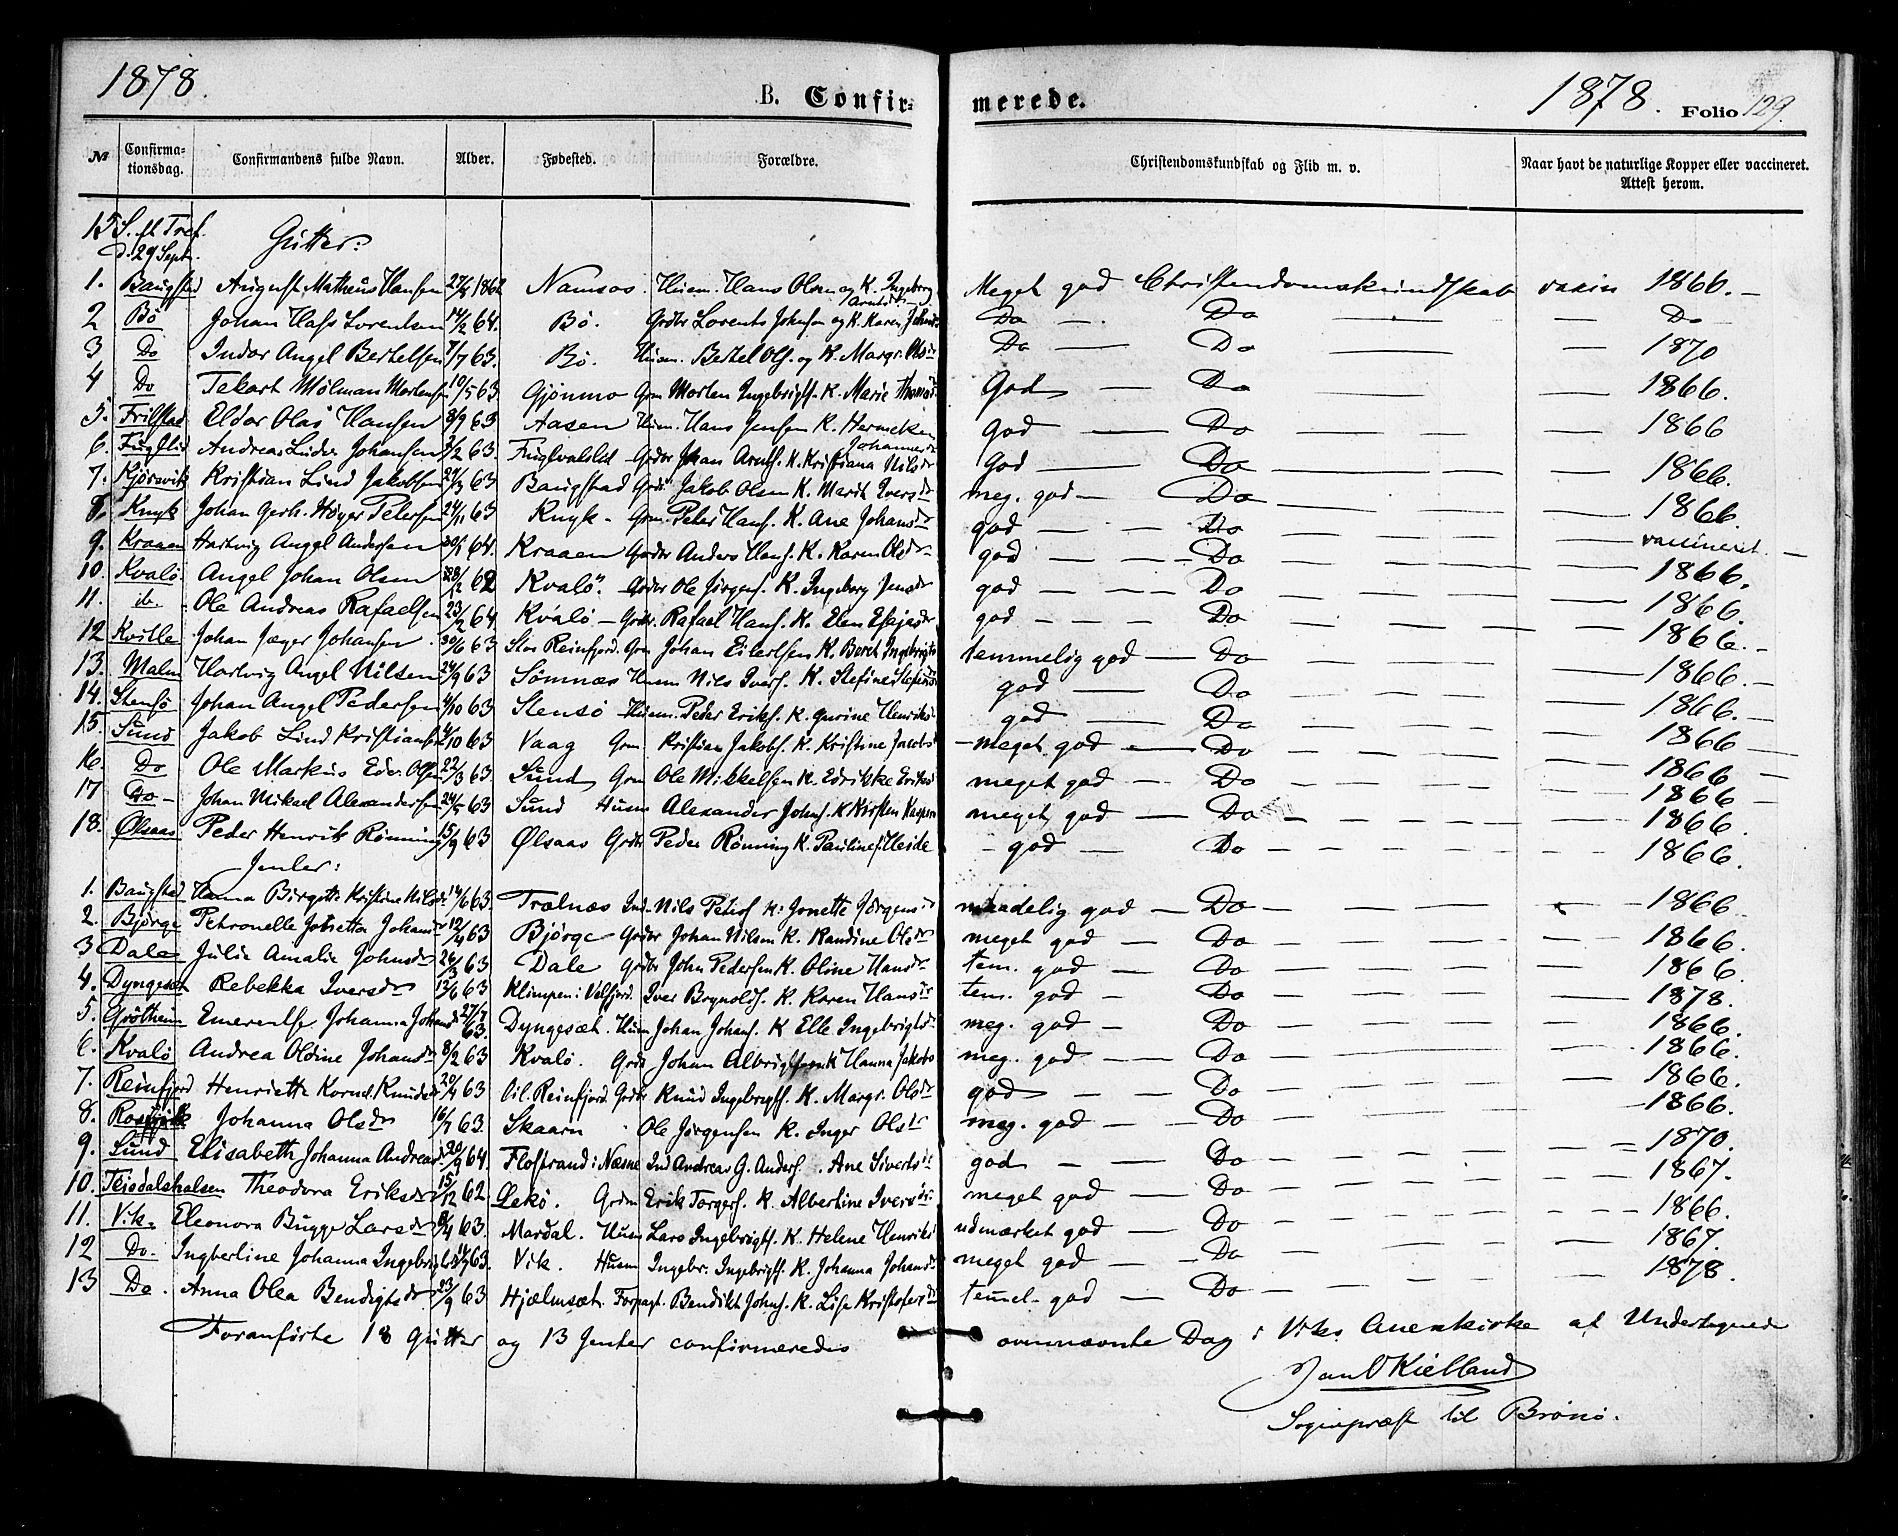 1878.
B. Confirmerede.
1878. Folio 129.
№ Confirmationsdag. Confirmandens fulde Navn. Alder. Fødested. Forældre. Christendomskundskab og Flid m. v. Naar havt de naturlige Kopper eller vaccineret. Attest herom.
15 S. ft Tref.
d. 29 Sept. Gutter:
1. Baugstad August Matheus Hansen 27/4 1862 Namsos. Huem. Hans Olsen og K. Ingeborg Arntsdr Meget god Christendomskundskab vaxin 1866. –
2 Bö Johan Hass Lorentsen 14/2 64. Bö. Grdbr Lorents Johnsen og K. Karen Do — Do — — Do
3 Do Indar Angel Bertelsen 7/7 63. Bö. Huem. Bertel Ols. og K. Margr. Olsdr Do — Do — — 1870
4 Do Tekart Mølman Mortensen 10/5 63. Gjönmo Grm Morten Ingebrigts. K. Marie God — Do — — 1866.
5. Frilstad Eldar Olai Hansen 8/9 63 Aasen Huem. Hans Jensen K. god — Do — — 1866
6. Andreas Lüder Johansen 7/2 63. Grdbr Johan Arnts. K. Kristiana Nilsdr God — Do — — 1866.
7. Kjörsvik Kristian Lind Jakobsen 63 Baugstad Jakob Olsen K. Marit Iversdr meg. god — Do — — 1866.
8. Knyk Johan Gerh. Høyer Petersen 24/11 63 Knyk – Grm. Peter Hans. K. Ane Johansdr god — Do — — vaccineret. –
9. Kraaen Hartvig Angel Andersen 64. Kraaen Grdbr Anders Hans. K. Karen Olsdr god — Do — — 1866.
10. Kvalö Angel Johan Olsen 62 Kvalö. Grdbr Ole Jörgens. K. Ingeborg Jensdr god — Do — — 1866.
11. ib. Ole Andreas Rafaelsen 23/2 64. Kvalö – Grdbr. Rafael Hans. K. Elen god — Do — — 1866.–
12 Johan Jæger Johansen 30/6 63 Stor Reinfjord. Grm Johan Eilertsen K. Beret temmelig god — Do — — 1866.–
13. Malm Hartvig Angel Nilsen 24/9 63 Sömnæs Huem Nils Ivers. K. Stefine god — Do — — 1866.–
14. Stensö Johan Angel Pedersen 4/10 63 Stensö Huem. Peder Eriks. K. Gurine Henriks god — Do — — 1866 –
15. Sund Jakob Lind Kristians 63 Vaag Grm Kristian Jakobs. K. Kristine Jacobs – meget god — Do — — 1866 –
16. Do Ole Markus Edv. Olsen 22/3 63. Sund Grm Ole Mikkelsen K. Edrikke Eriks meget god — Do — — 1866 –
17 Do – Johan Mikael Alexandersen 63 Sund Husm Alexander Johns. K Kirsten meget god — Do — — 1866.
18. Ølsaas Peder Henrik Rönning 15/9 63 Ølsaas Grdbr Peder Rönning K. Pauline Heide – god — Do — — 1866.
Jenter:
1. Baugstad Hanna Birgitte Kristine Nilsdr. 14/6 63. Trælnæs Ind. Nils K: Jonette Jörgens maadelig god — Do — — 1866
2. Bjørge Petronelle Johansdr 12/4 63 Bjørge Grdbr Johan Nilsen K. Randine Olsdr meget god — Do — — 1866.
3 Dale Julie Amalie Johnsdr 26/3 63 Dale Grdbr John Pedersen K. Oline Hansdr tem. god — Do — — 1866.
4. Dyngesæt Rebekka Iversdr 13/6 63 Klimpen i Velfjord. Iver Brynolds. K. Karen Hansdr tem. god – Do — — 1878.
5. Emerentse Johanna 27/7 63. Dyngesæt. Huem Johan Johans. K Elle Ingebrigtsdr meg. god – Do — — 1866.
6. Kvalö Andrea Oldine Johansdr 8/2 63 Kvalö. Grdb Johan K Hanna Jakobs meg. god — Do — — 1866.
7. Reinfjord Henriette Kornel. Knudsdr 20/4 63 Lil. Reinfjord. Grdbr Knud Ingebrigts. K. Margr. Olsdr god — Do — — 1866.
8. Johanna Olsdr 16/7 63. Skaarn Ole Jörgensen K. Inger Olsdr meg. god — Do — — 1866.
9. Sund Elisabeth Johanna Andreasdr 20/9 64. Flostrand i Næsne Ind Andreas G. Anders. Ane Siverts god — Do — — 1870.
10. Theodora Eriksdr 15/12 62 Lekö. Grdm Erik Torgers. K. Albertine Iversdr. meget god — Do — — 1867.
11. Vik – Eleonora Bugge Larsdr 63. Mardal. Husm Lars Ingebrigts. K. Helene Henriks udmærket god — Do — — 1866.
12 Do. Ingberline Johanna 63. Vik. Husm Ingebr. Ingebrigts. K. Johanna Johansdr meget god — Do — — 1867.
13 Do. Anna Olea Bendigtsdr 23/9 63 Hjælmsæt. Forpagt. Bendikt Johns. K. Lise Kristofersdr temmel. god — Do — — 1878.
Foranførte 18 Gutter og 13 Jenter confirmeredes ovennævnte Dag i Viks Annexkirke af Undertegnede
Kielland
Sognepræst til Brönö.